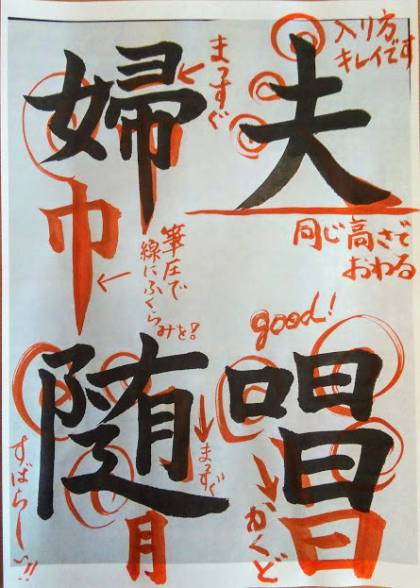 夫唱
婦随
入り方
キレイです
同じ高さで
おわる
good!
かくど
日
まっすぐ
巾
筆圧で
線にふくらみを!
まっすぐ
月
すばらしー!!